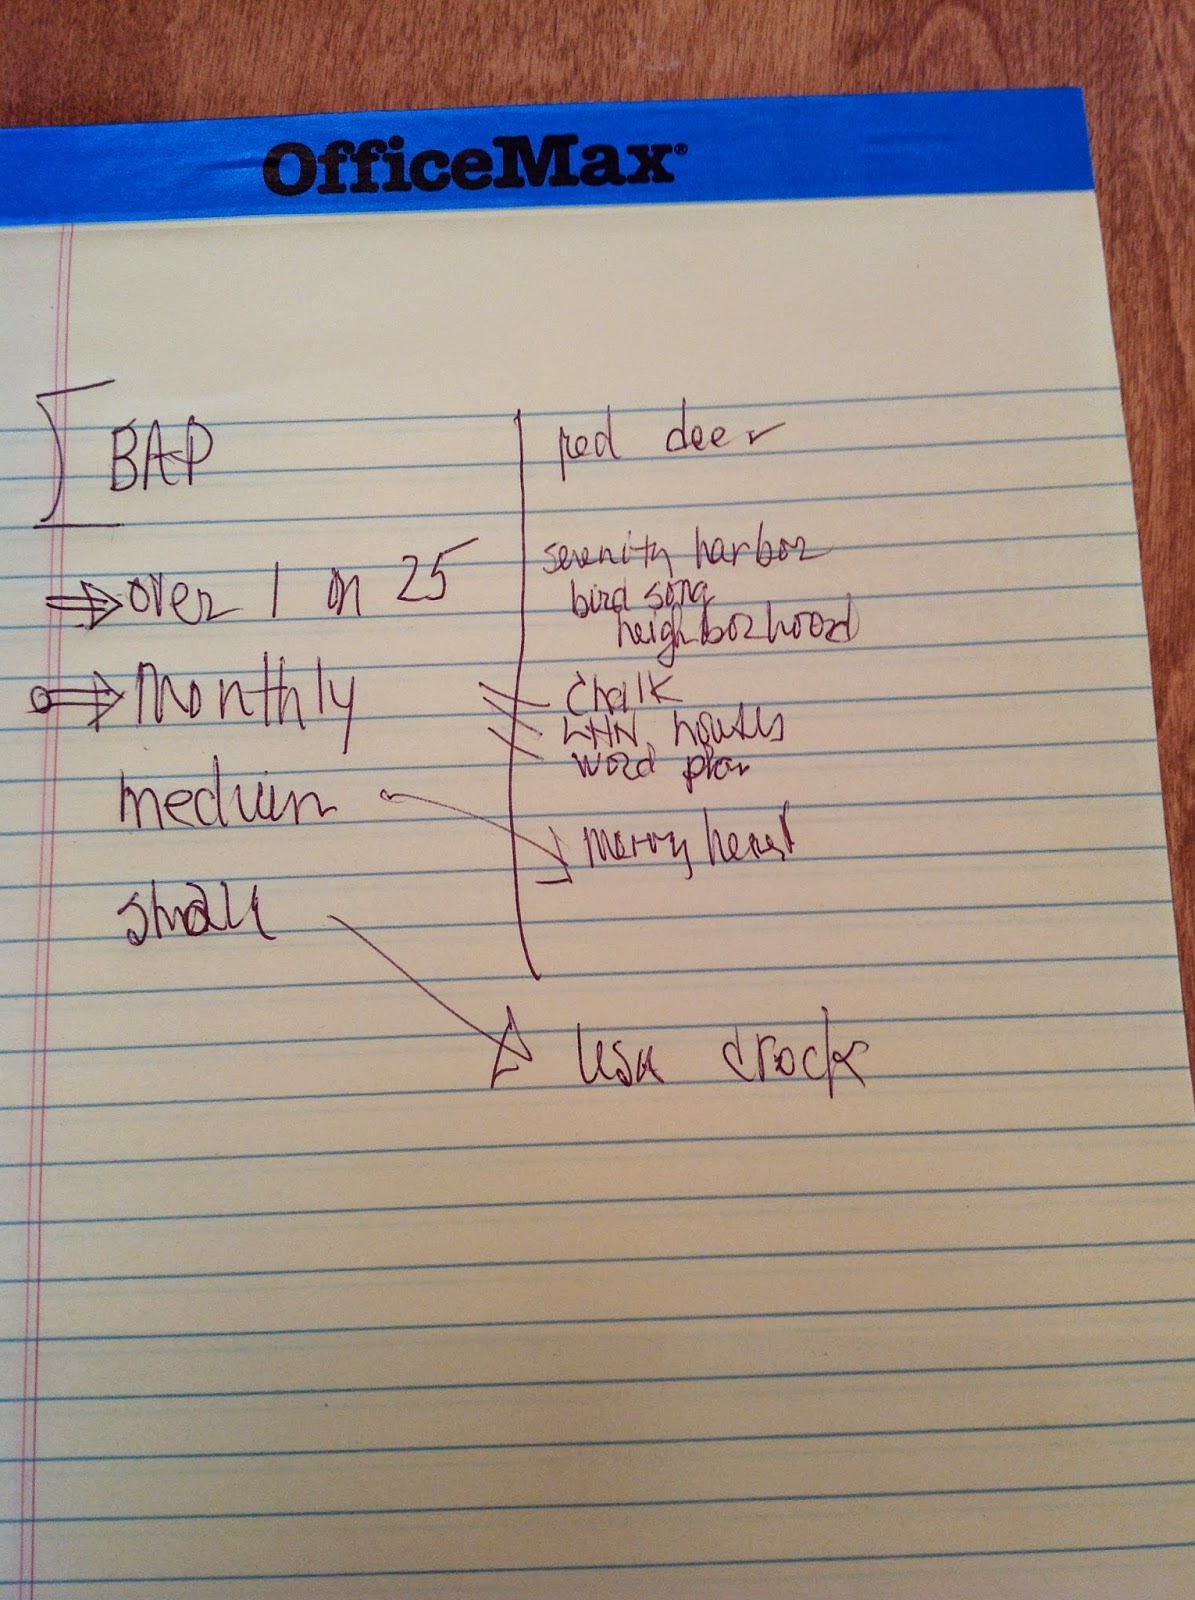 OfficeMax®
BAP
red deer
over 1 on 25
serenity harbor
bird song
neighborhood
monthly
Chalk
LHN houses
word play
medium
merry heart
small
usa crock